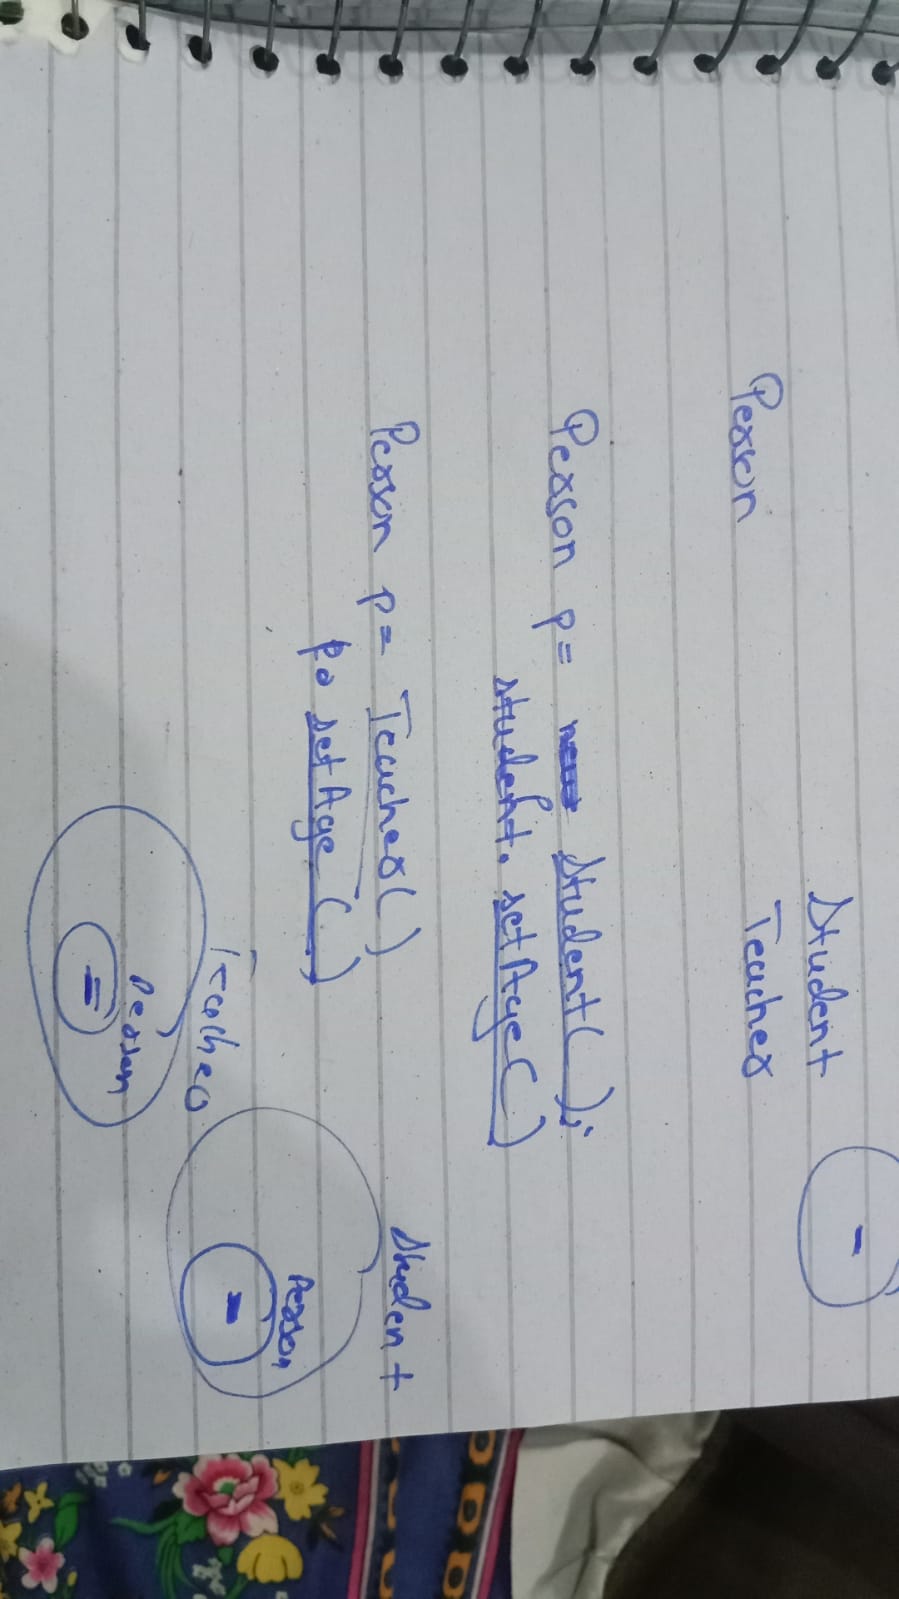 Student
Person Teacher
Person p= Student();
student. setAge()
Person p= Teacher()
p. setAge()
Student
Person
Teacher
Person